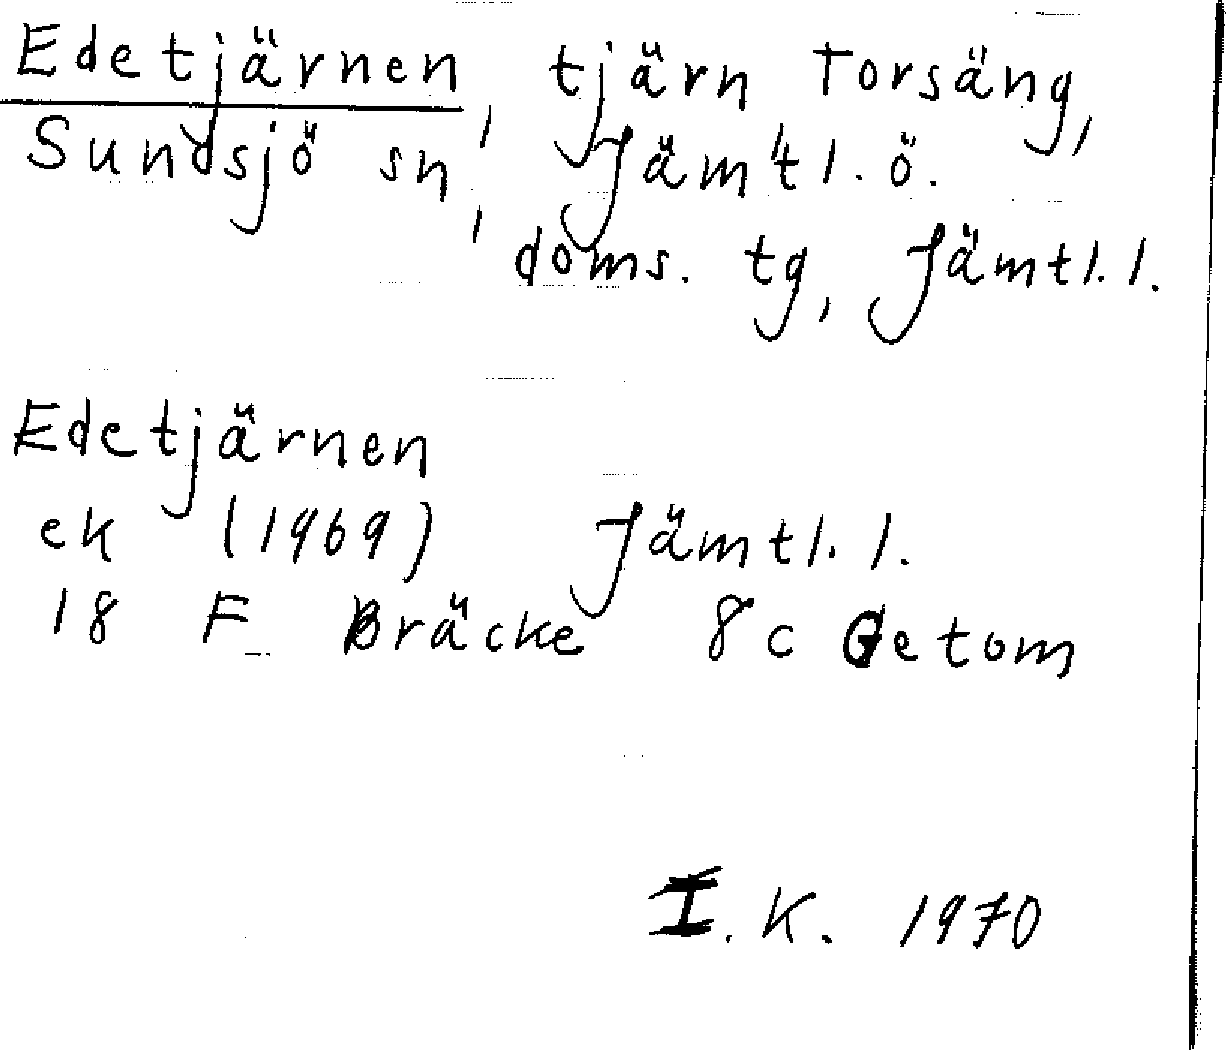 Edetjärnen, tjärn Torsäng,
Sundsjö sn, Jämtl. ö.
doms. tg, Jämtl. l.
Edetjärnen
ek (1969) Jämtl. l.
18 F Bräcke 8c Getom
I. K. 1970